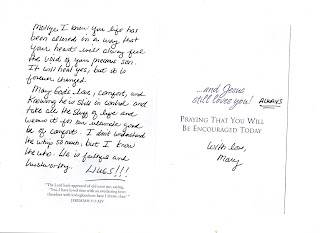 Mollye I know your life has
been altered in a way that
your heart will always feel
the void of your precious son.
It will heal yes, but it is
forever changed.
May God's love, comfort, and
Knowing he is still in control and
take all the stuff of life and
weave it for our ultimate good
be of comfort. I don't understand
the whys so much, but I know
the who. He is faithful and
trustworthy.
LIVES!!!
"The Lord hath appeared of old unto me, saying,
'Yea, I have loved thee with an everlasting love:
therefore with lovingkindness have I drawn thee.'"
JEREMIAH 31:3 KJV
...and Jesus
still loves you! ALWAYS
PRAYING THAT YOU WILL
BE ENCOURAGED TODAY
With love,
Mary